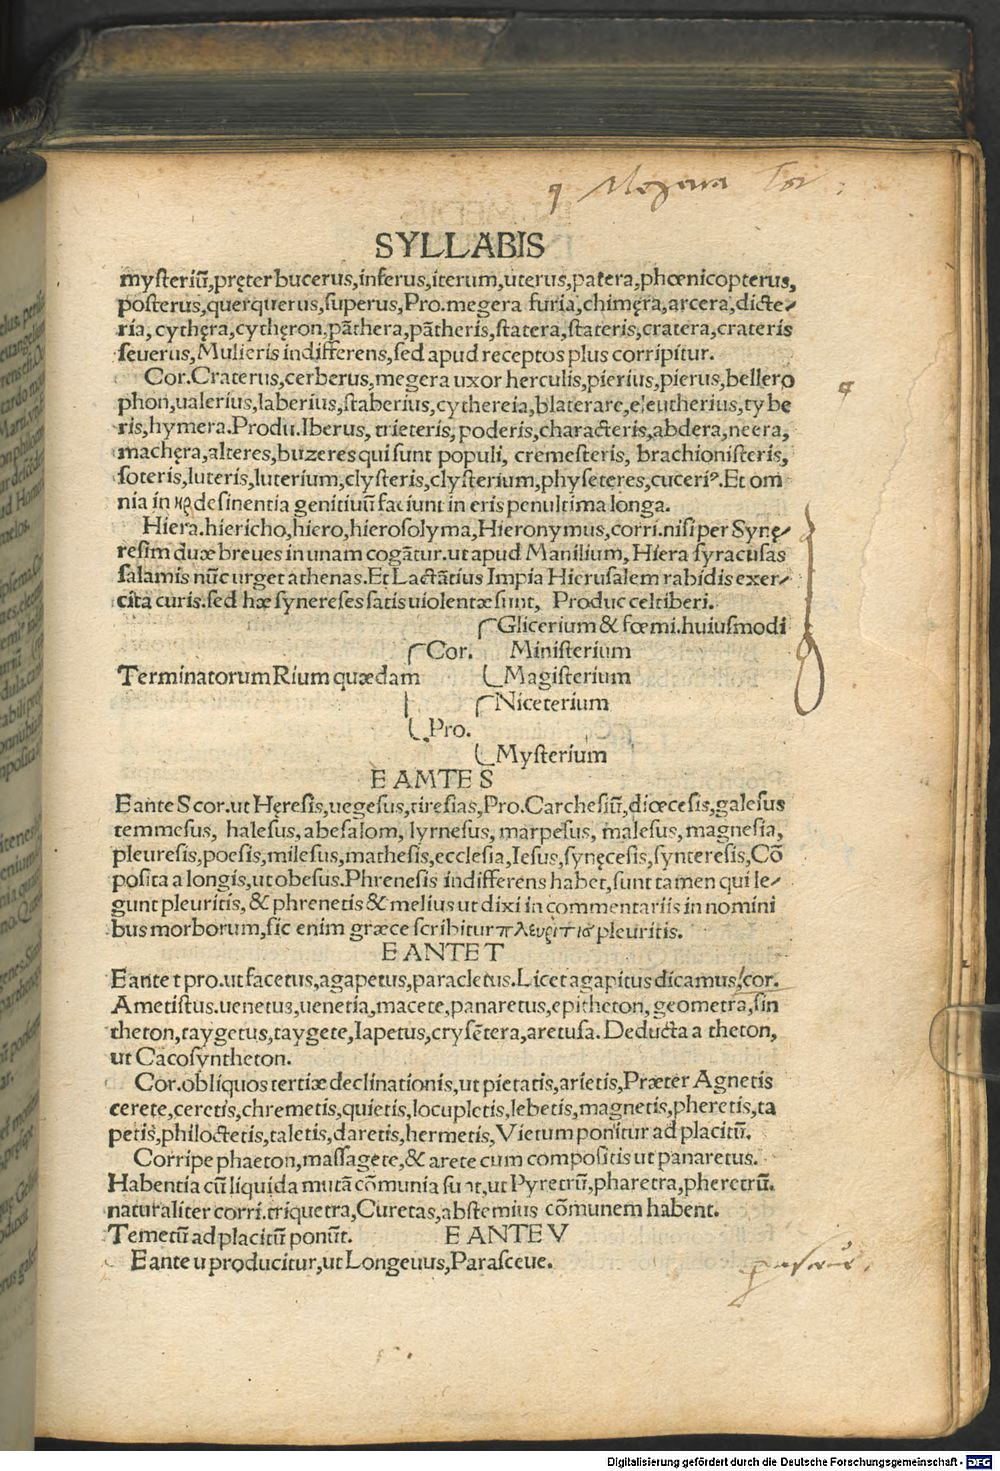 SYLLABIS
mysteriū,pręter bucerus,inferus,iterum,uterus,patera,phœnicopterus,
posterus,querquerus,superus,Pro.megera furia,chimęra,arcera,dicte⸗
ria, cythęra,cythęron,pāthera,pātheris,statera,stateris,cratera,crateris
seuerus,Mulieris indifferens,sed apud receptos plus corripitur.
Cor.Craterus,cerberus,megera uxor herculis,pierius,pierus,bellero
phon,ualerius,laberius,staberius,cythereia,blaterare,eleutherius,tybe
ris,hymera.Produ.Iberus, trieteris, poderis,characteris,abdera,neera,
machęra,alteres,buzeres qui sunt populi, cremesteris, brachionisteris,
soteris,luteris,luterium,clysteris,clysterium,physeteres,cuceriꝰ.Et om
nia in ηρ desinentia genitiuū faciunt in eris penultima longa.
Hiera.hiericho,hiero,hierosolyma,Hieronymus,corri.nisi per Synę⸗
resim duæ breues in unam cogātur.ut apud Manilium, Hiera syracusas
salamis nūc urget athenas.Et Lactātius Impia Hierusalem rabidis exer⸗
cita curis.sed hæ synereses satis uiolentæ sunt, Produc celtiberi.
Glicerium & fœmi.huiusmodi
Cor. Ministerium
Terminatorum Rium quædam Magisterium
Niceterium
Pro.
Mysterium
E AMTE S
E ante S cor.ut Hęresis,uegesus,tiresias,Pro.Carchesiū,diœcesis,galesus
temmesus, halesus, abesalom, lyrnesus, marpesus, malesus, magnesia,
pleuresis,poesis,milesus,mathesis,ecclesia,Iesus,synęcesis,synteresis,Cō
posita a longis,ut obesus.Phrenesis indifferens habet,sunt tamen qui le⸗
gunt pleuritis, & phrenetis & melius ut dixi in commentariis in nomini
bus morborum,sic enim græce scribitur πλευρίτισ pleuritis.
E ANTE T
E ante t pro.ut facetus,agapetus,paracletus.Licet agapitus dicamus/cor.
Ametistus.uenetus,uenetia,macete,panaretus,epitheton, geometra,sin
theton,taygetus,taygete,Iapetus,crysētera,aretusa. Deducta a theton,
ut Cacosyntheton.
Cor.obliquos tertiæ declinationis,ut pietatis,arietis,Præter Agnetis
cerete,ceretis,chremetis,quietis,locupletis,lebetis,magnetis,pheretis,ta
petis,philoctetis,taletis,daretis,hermetis,Vietum ponitur ad placitū.
Corripe phaeton,massagete,& arete cum compositis ut panaretus.
Habentia cū liquida mutā cōmunia sunt,ut Pyretrū,pharetra,pheretrū.
naturaliter corri.triquetra,Curetas,abstemius cōmunem habent.
Temetū ad placitū ponūt. E ANTE V
E ante u producitur,ut Longeuus,Parasceue.
Digitalisierung gefördert durch die Deutsche Forschungsgemeinschaft - DFG